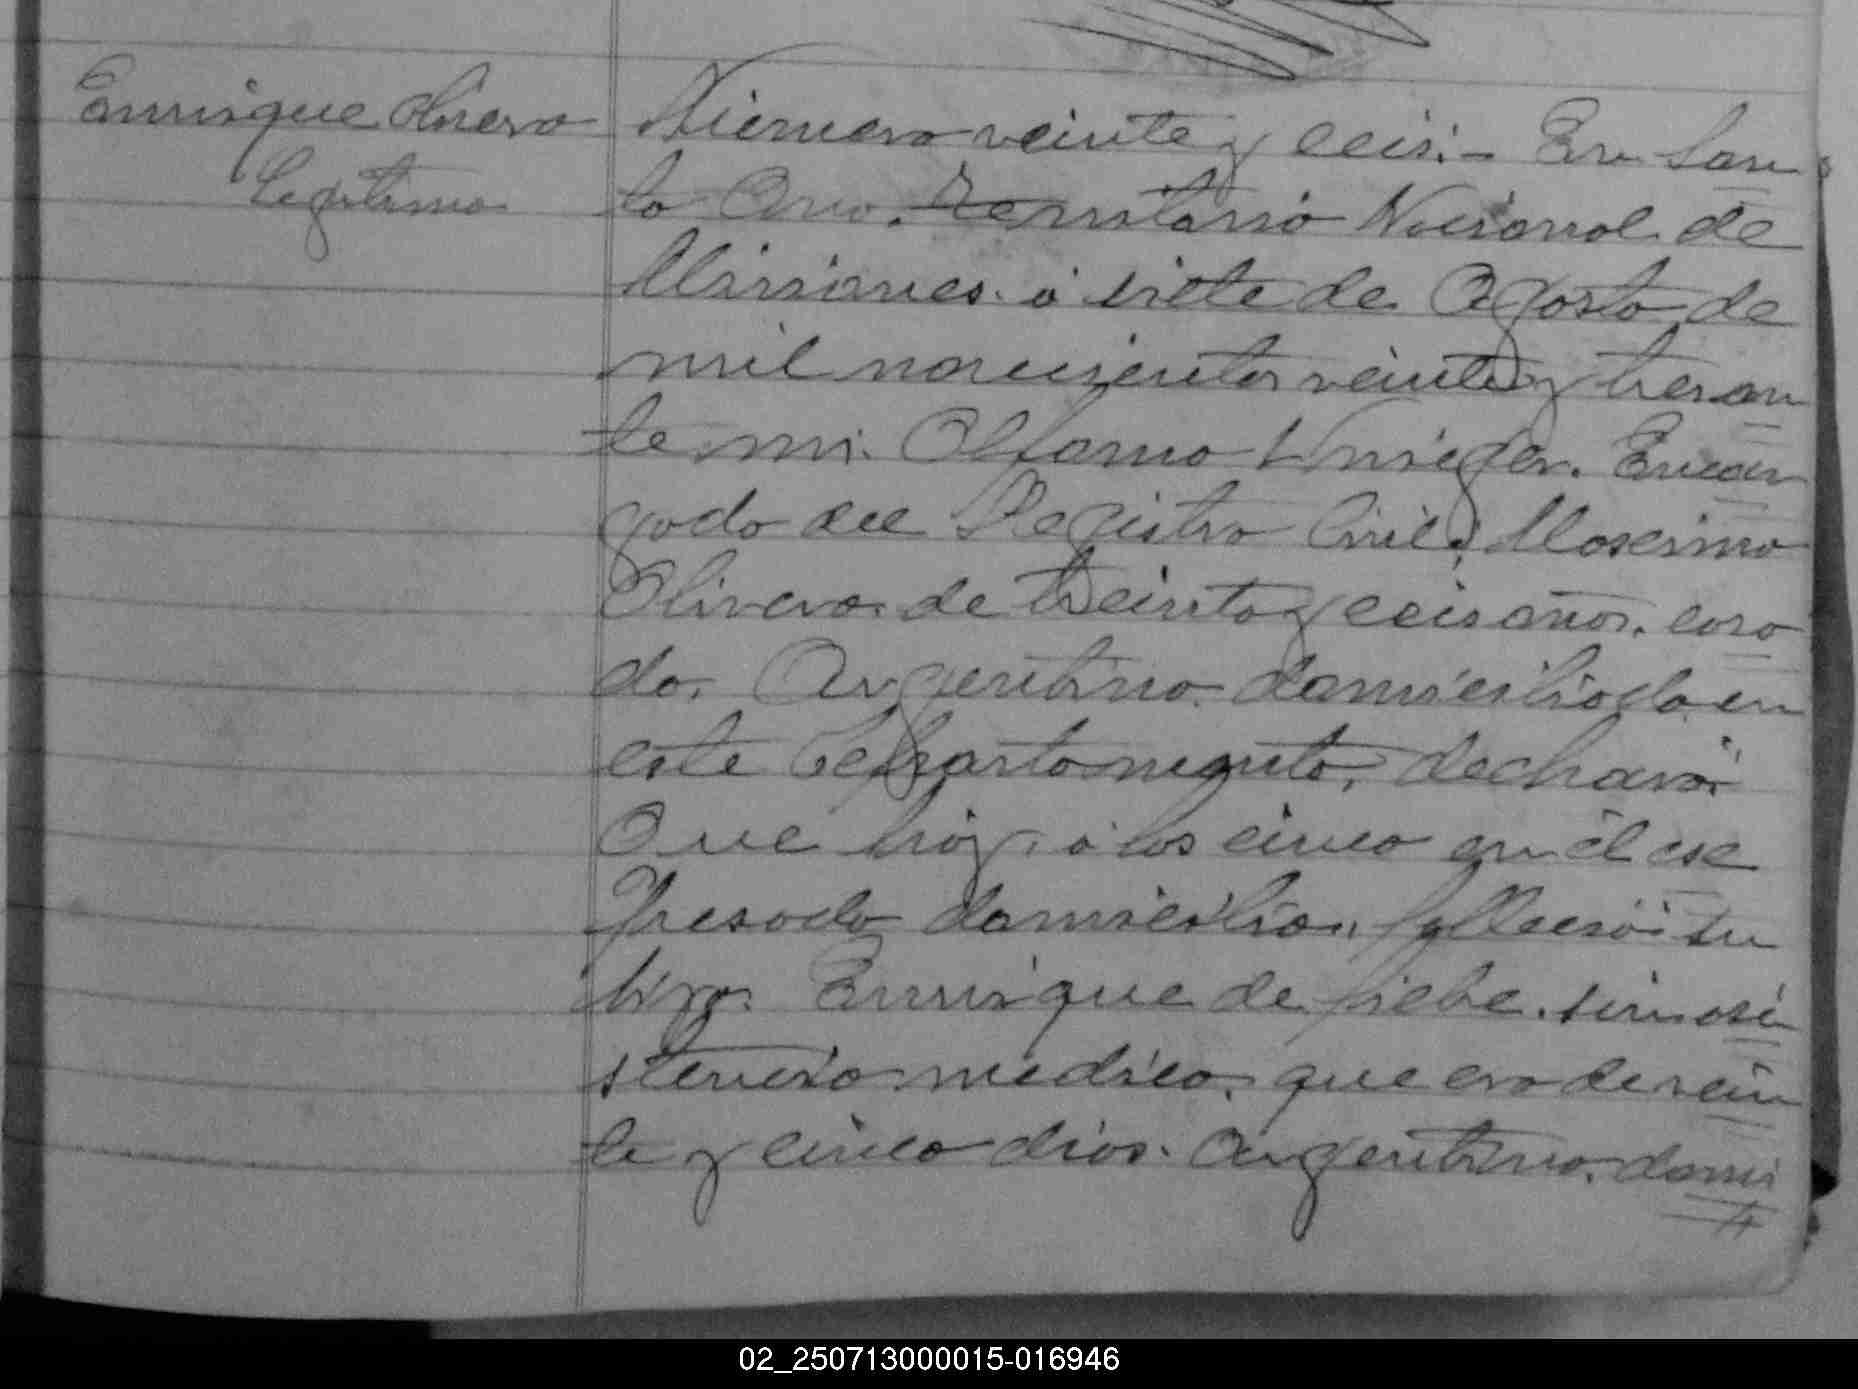 Enrrique Olivera
Legitimo
Numero veinte y ceis.- En San
ta Ana. Territorio Nacional de
Misiones. á siete de Agosto de
mil novecientos veinte y tres an
te mi. Encar
gado del Registro Civil; Macsimo
Olivera. de treinta y ceis años. casa
do. Argentino. domiciliado en
este Departamento, declaró:
Que hoy. á las cinco en él ex
presado domicilio. falleció su
hijo. Enrrique de fiebe. sin asi
stencia medica. que era de vein
te y cinco dias. Argentino. domi
02_250713000015-016946